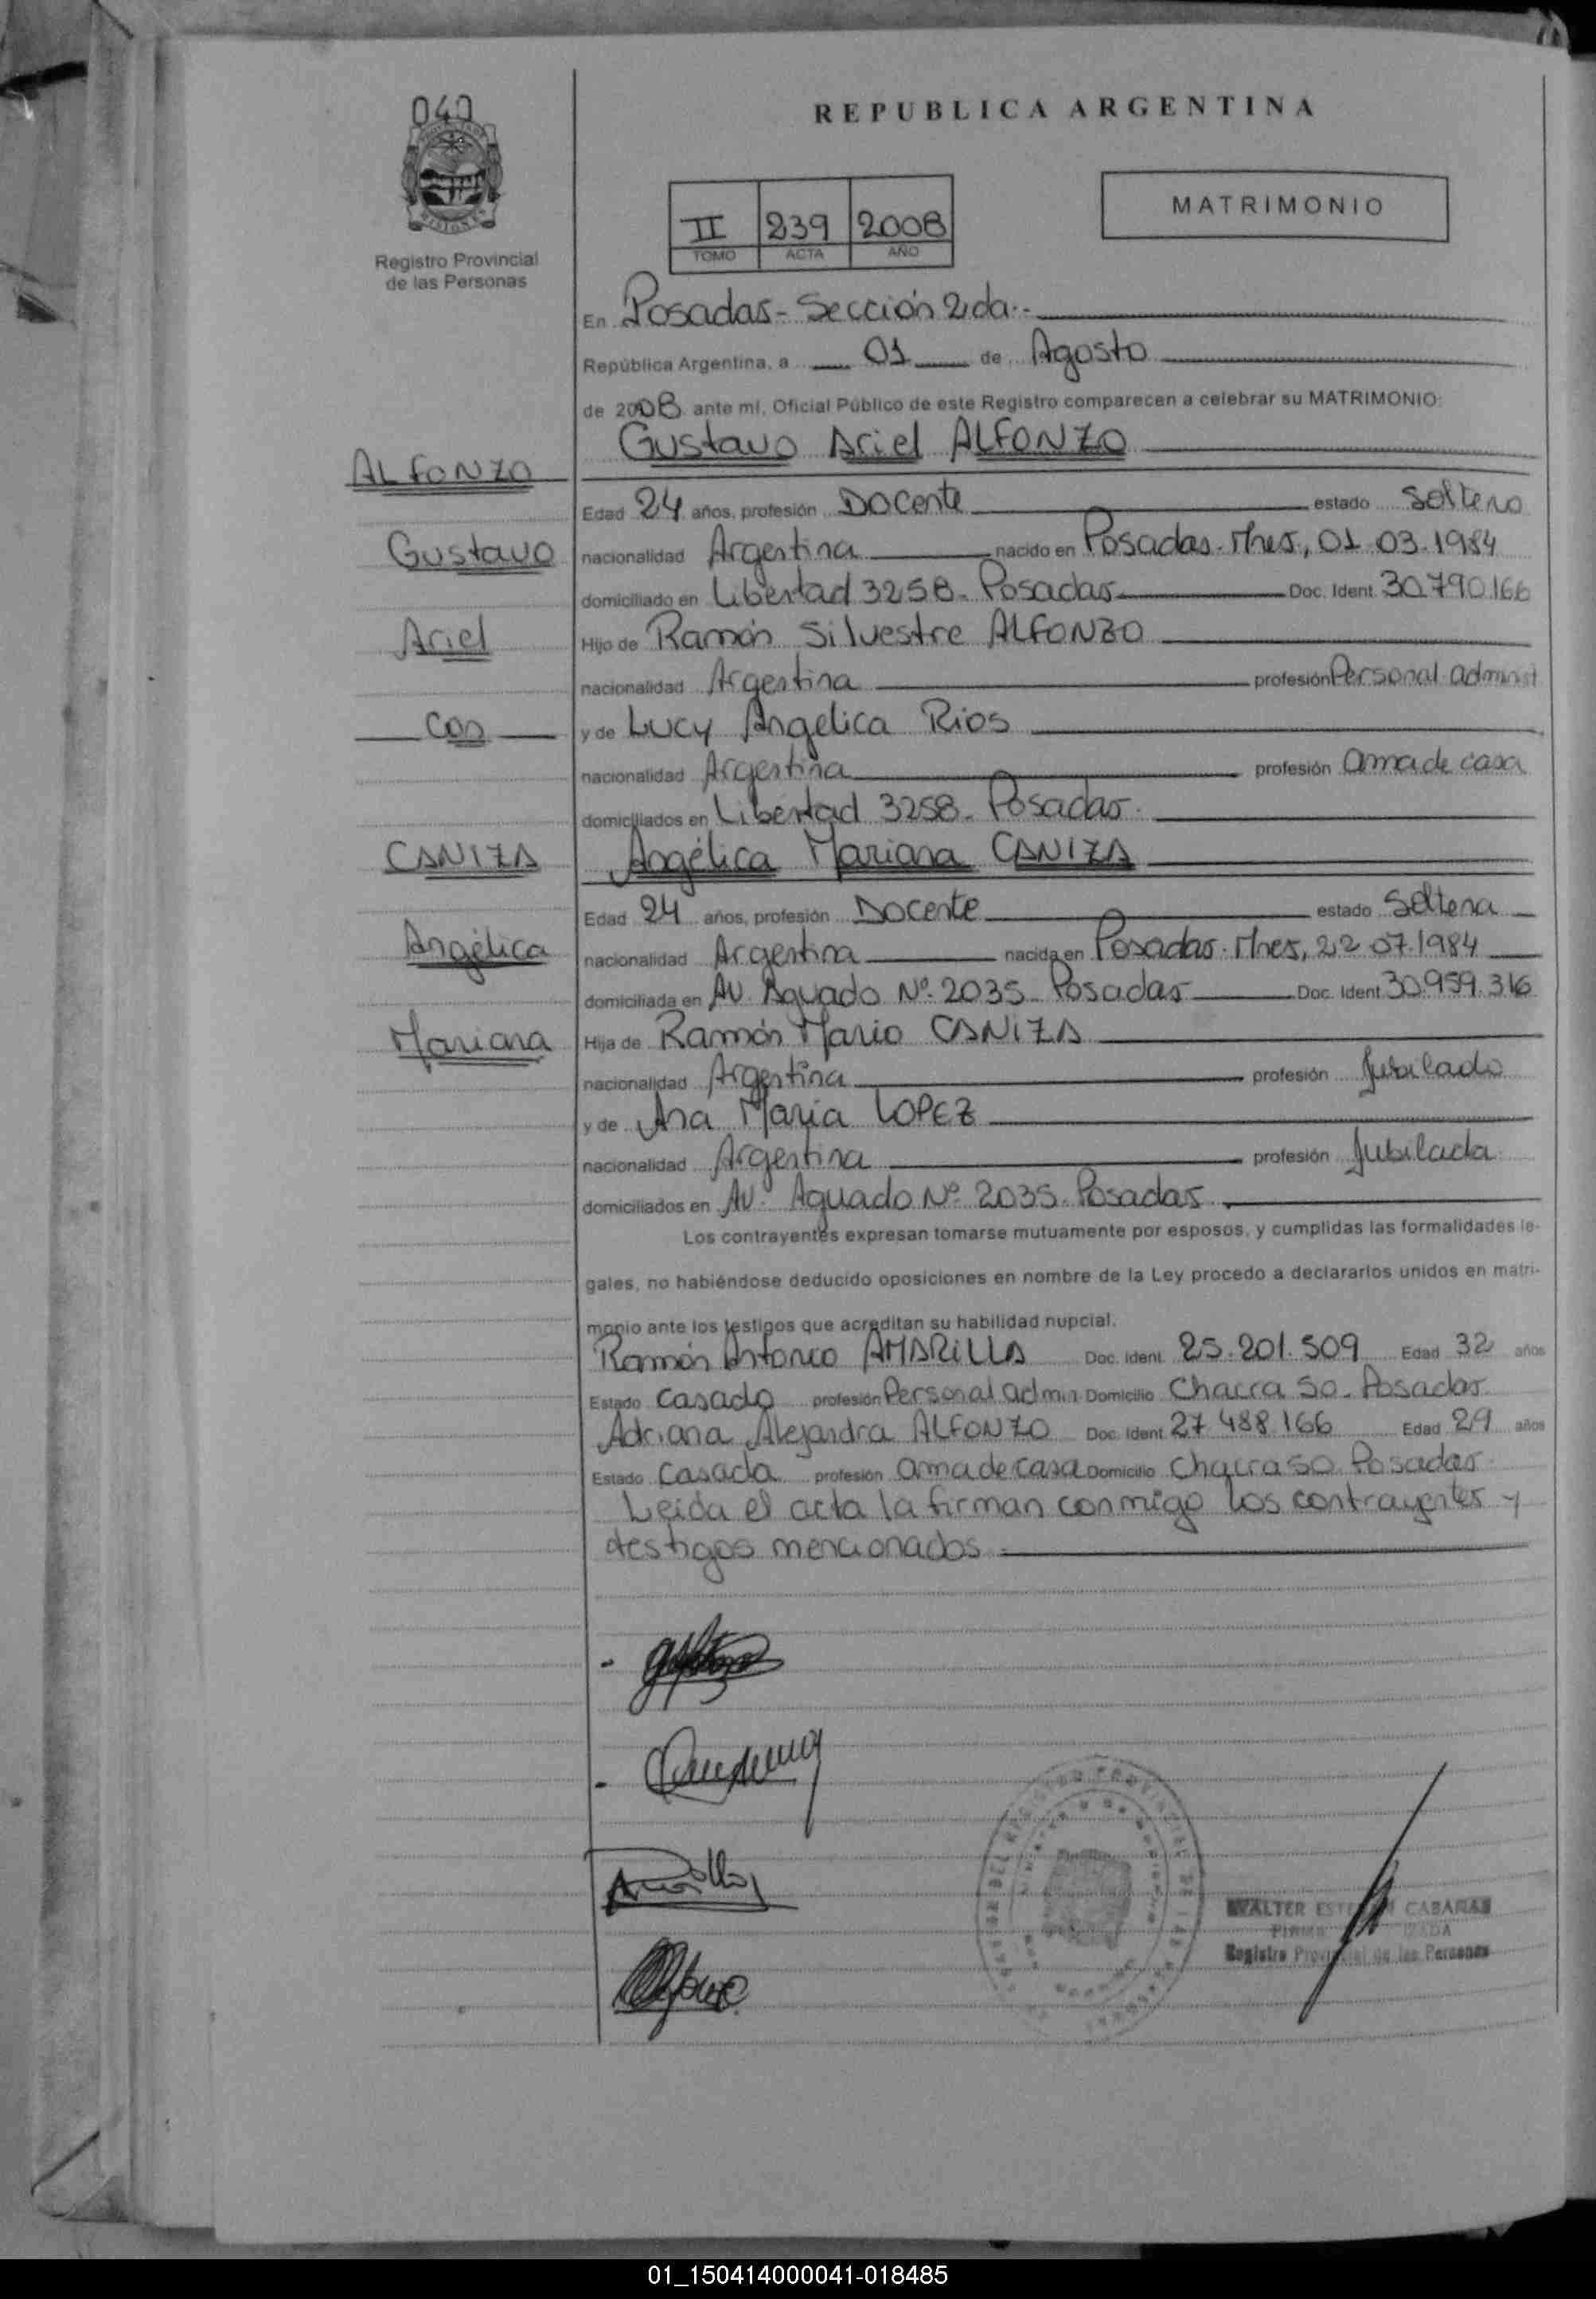 040
REPUBLICA ARGENTINA
MATRIMONIO
II 239 2008
TOMO ACTA AÑO
Registro Provincial
de las Personas
En Posadas - Sección 2da.-
República Argentina, a 01 de Agosto
de 2008 ante mí, Oficial Público de este Registro comparecen a celebrar su MATRIMONIO:
Gustavo Ariel ALFONZO
ALFONZO
Edad 24 años, profesión Docente estado Soltero
Gustavo
nacionalidad Argentina nacido en Posadas. Mnes, 01.03.1984
domiciliado en Libertad 3258. Posadas Doc. Ident. 30.790.166
Ariel
Hijo de Ramón Silvestre ALFONZO
nacionalidad Argentina profesión Personal administ
Con
y de Lucy Angelica Rios
nacionalidad Argentina profesión ama de casa
domiciliados en Libertad 3258. Posadas.
CANIZA
Angélica Mariana CANIZA
Edad 24 años, profesión Docente estado Soltera
Angélica
nacionalidad Argentina nacida en Posadas. Mnes, 22.07.1984
domiciliada en Av. Aguado Nº 2035. Posadas Doc. Ident. 30.959.316
Mariana
Hija de Ramón Mario CANIZA
nacionalidad Argentina profesión Jubilado
y de Ana María LOPEZ
nacionalidad Argentina profesión Jubilada
domiciliados en Av. Aguado Nº 2035. Posadas
Los contrayentes expresan tomarse mutuamente por esposos, y cumplidas las formalidades le-
gales, no habiéndose deducido oposiciones en nombre de la Ley procedo a declararlos unidos en matri-
monio ante los testigos que acreditan su habilidad nupcial.
Ramón Antonio AMARILLA Doc. Ident. 25.201.509 Edad 32 años
Estado Casado profesión Personal admin Domicilio Chacra 50. Posadas
Adriana Alejandra ALFONZO Doc. Ident. 27.488.166 Edad 29 años
Estado Casada profesión ama de casa Domicilio Chacra 50. Posadas
Leída el acta la firman conmigo los contrayentes y
testigos mencionados
WALTER CABAÑAS
Registro Provincial de las Personas
01_150414000041-018485